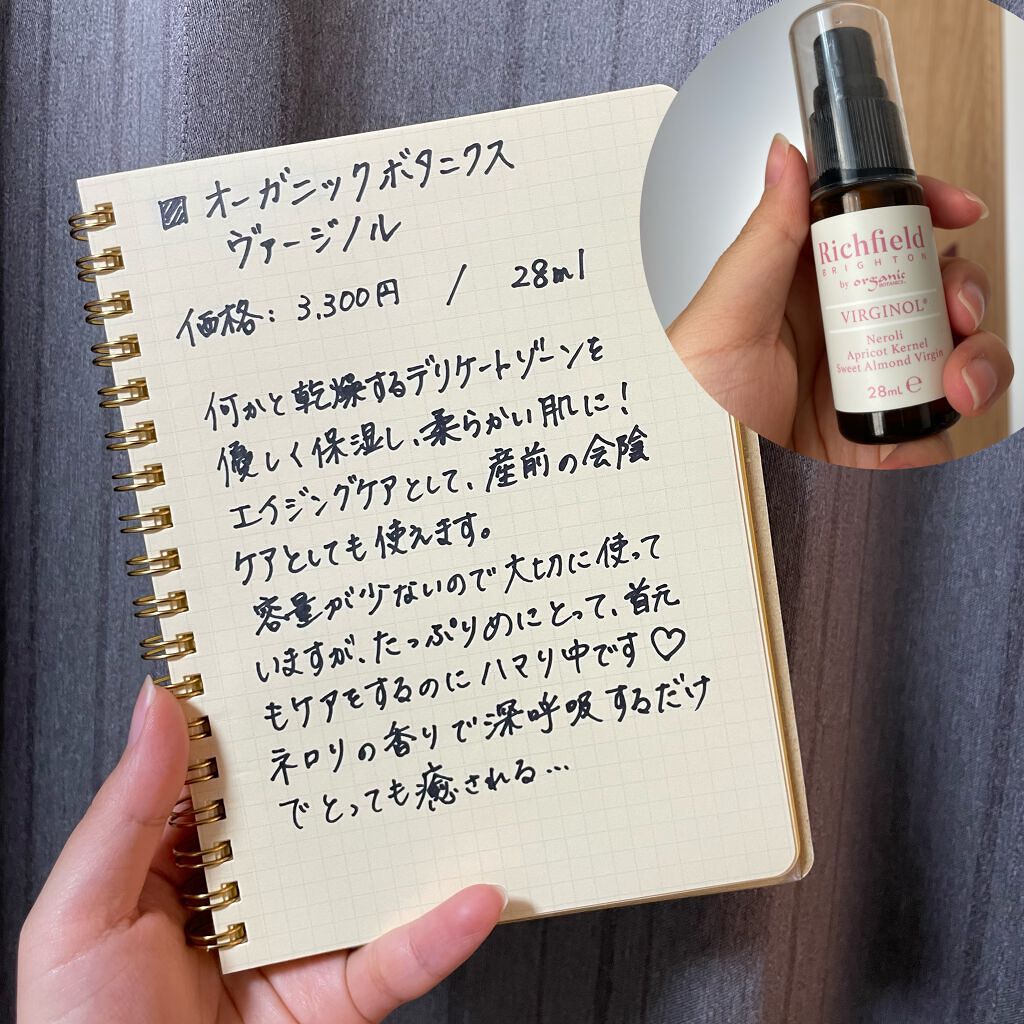 オーガニックボタニクス
ヴァージノル
価格: 3,300円 / 28ml
何かと乾燥するデリケートゾーンを
優しく保湿し、柔らかい肌に!
エイジングケアとして、産前の会陰
ケアとしても使えます。
容量が少ないので大切に使って
いますが、たっぷりめにとって、首元
もケアをするのにハマり中です♡
ネロリの香りで深呼吸するだけ
でとっても癒される…
Richfield
BRIGHTON
by organic
BOTANICS
VIRGINOL®
Neroli
Apricot Kernel
Sweet Almond Virgin
28mL ℮